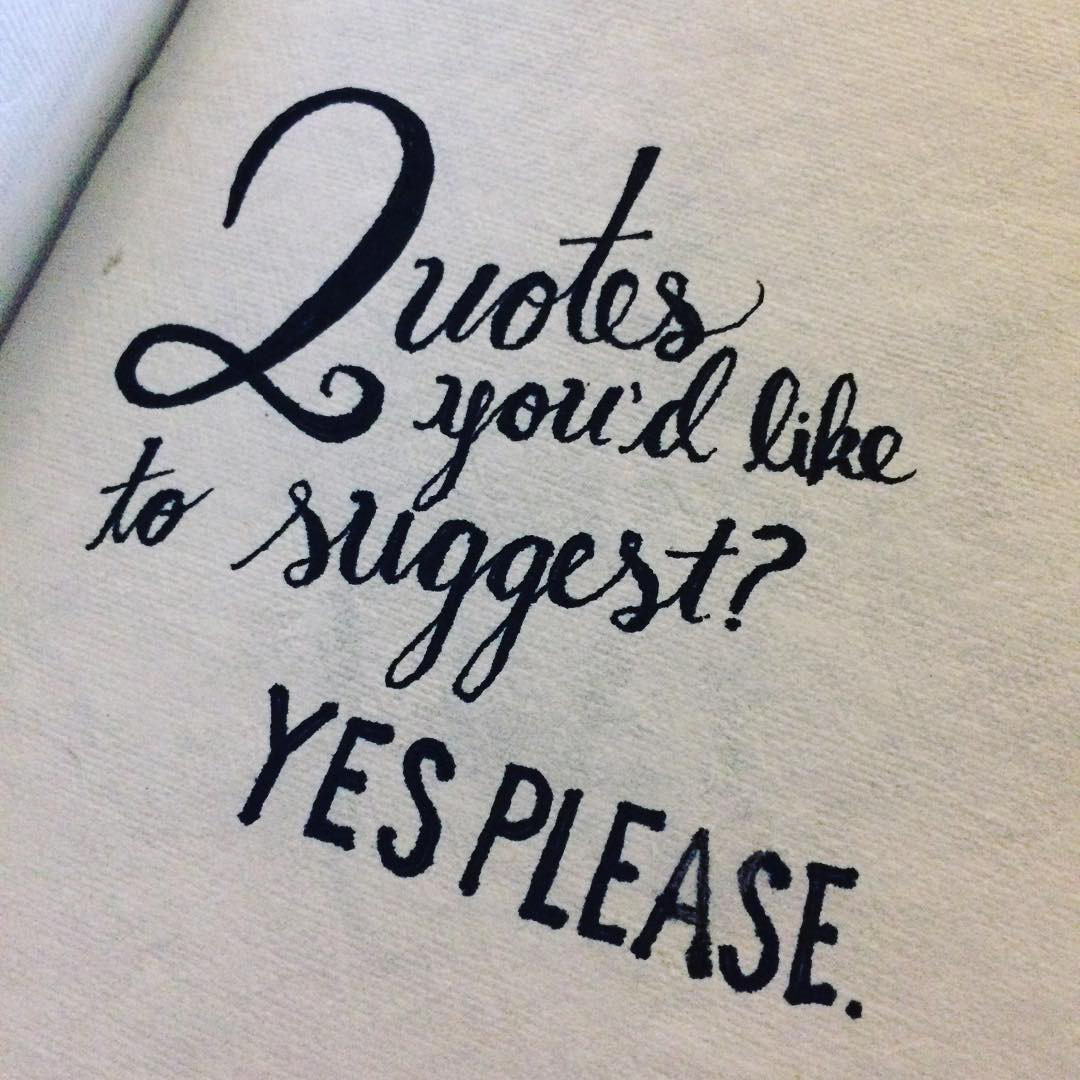 Quotes
you'd like
to suggest?
YES PLEASE.